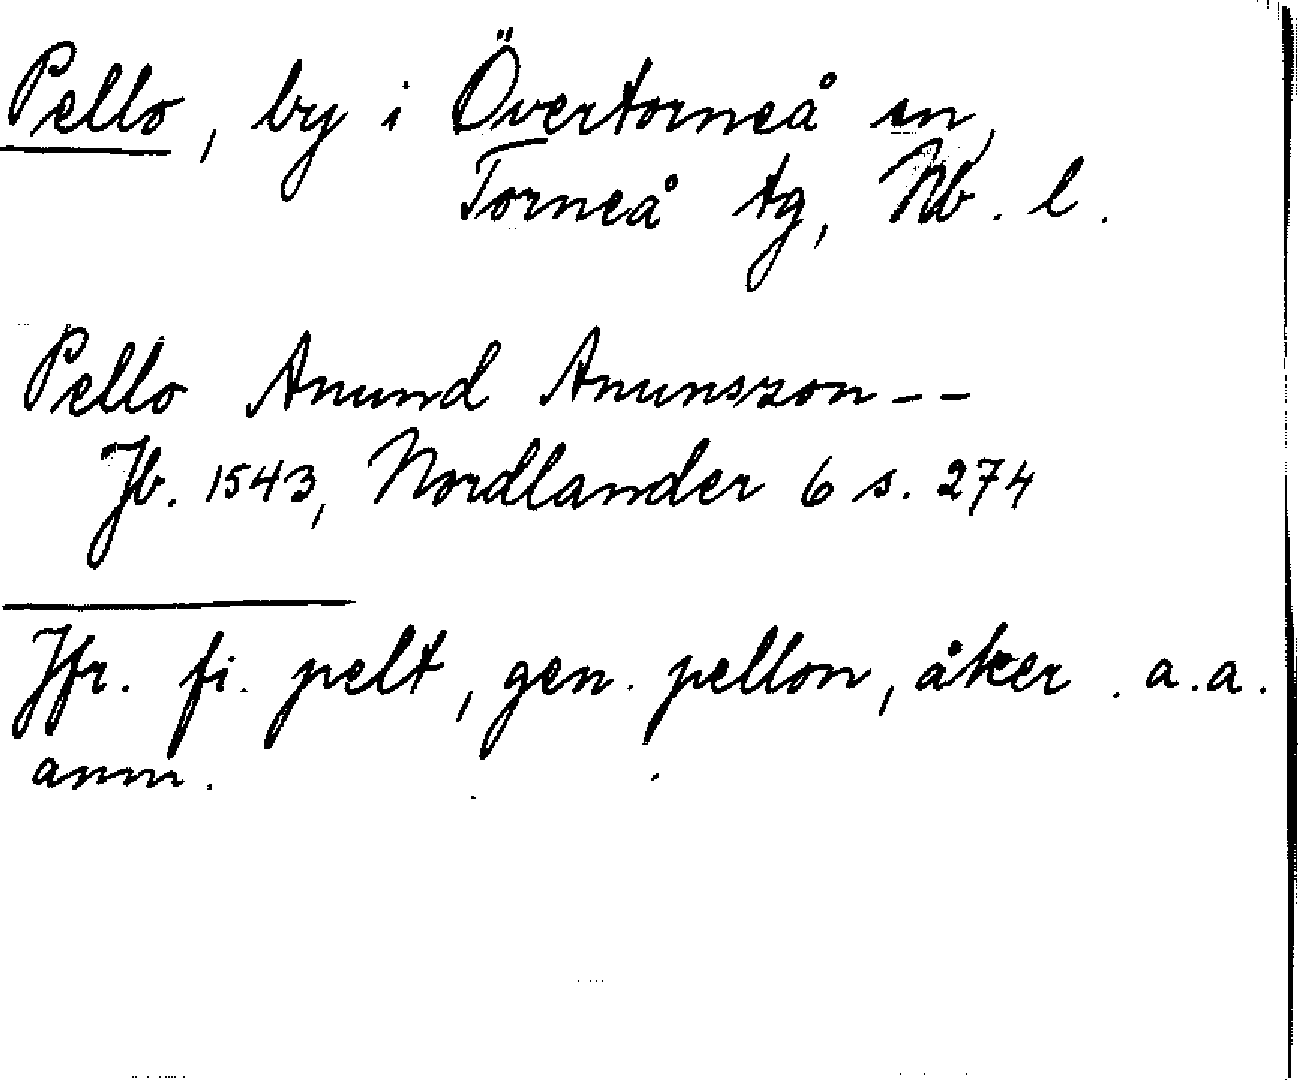 Pello, by i Övertorneå sn,
Torneå tg, Nb. l.
Pello Anund Anunszon --
Jb. 1543, Nordlander 6 s. 274
Jfr. fi. pelt, gen. pellon, åker. a.a.
anm.